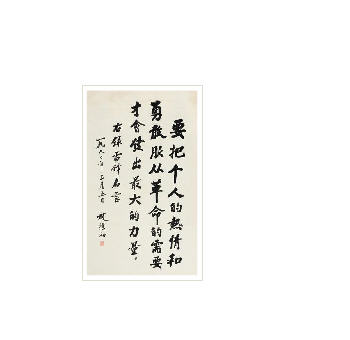 要把个人的热情和
勇敢服从革命的需要
才会发出最大的力量。
右录雷锋名言
一九八〇年 三月五日
赵朴初